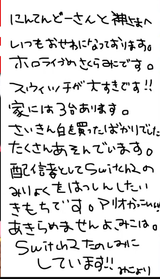 にんてんどーさんと神さまへ
いつもおせわになっております。
ホロライブのさくらみこです。
スウィッチが大すきです!!
家には3台あります。
さいきん白を買ったばかりでした
たくさんあそんでいます。
配信者としてSwitch2の
みりょくをはっしんしたい
きもちです。
あきらめませんよみこは。
Switch2たのしみに
しています!! みこより